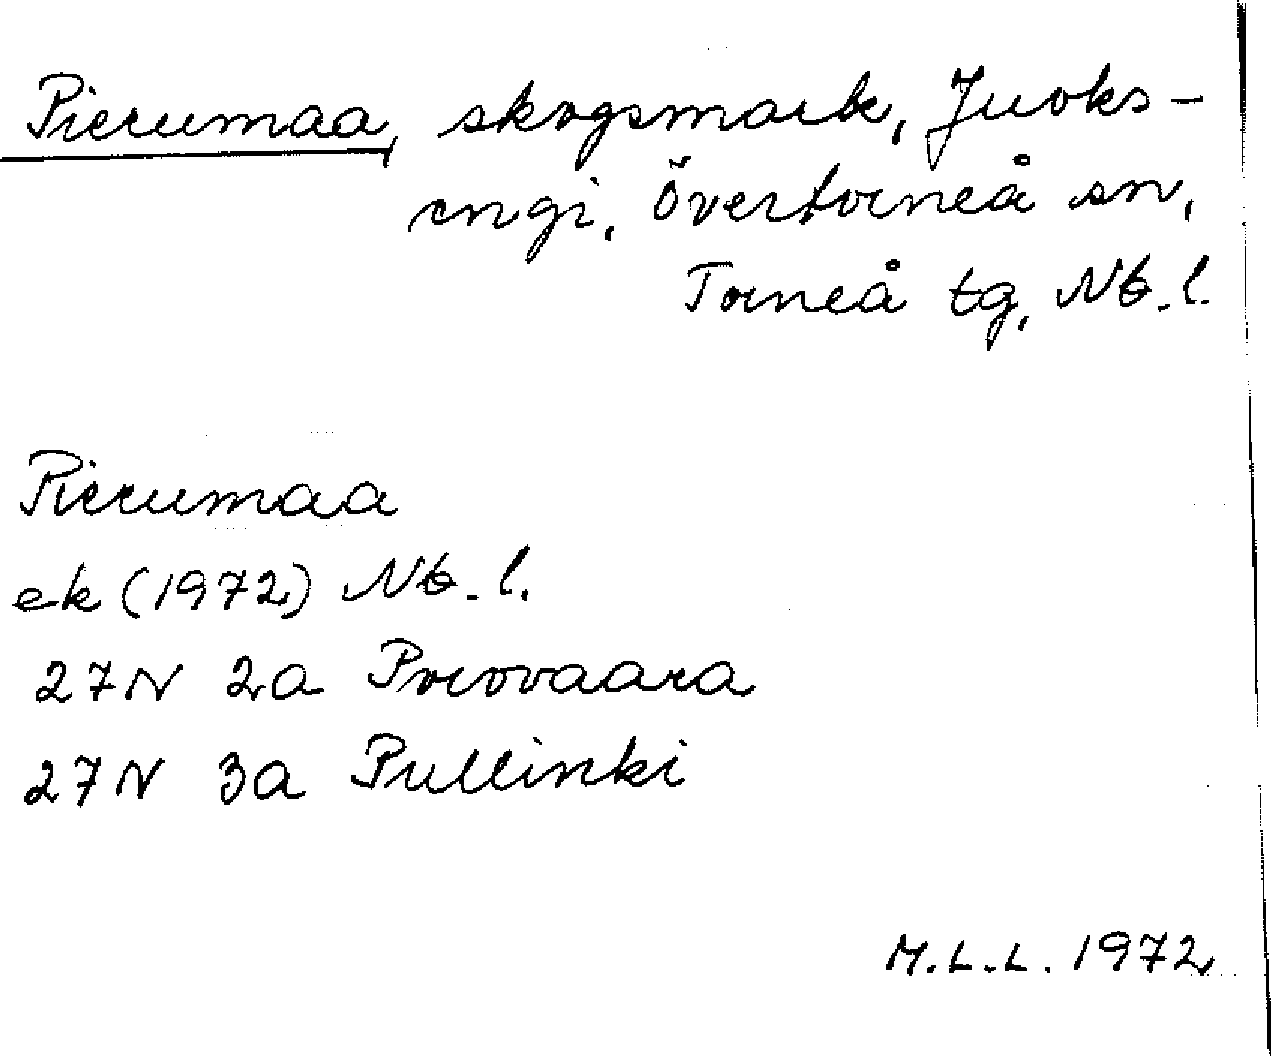 Pierumaa, skogsmark, Juoks-
engi, Övertorneå sn,
Torneå tg, Nb. l.
Pierumaa
ek (1972) Nb. l.
27N 2a Porovaara
27N 3a Pullinki
M.L.L. 1972